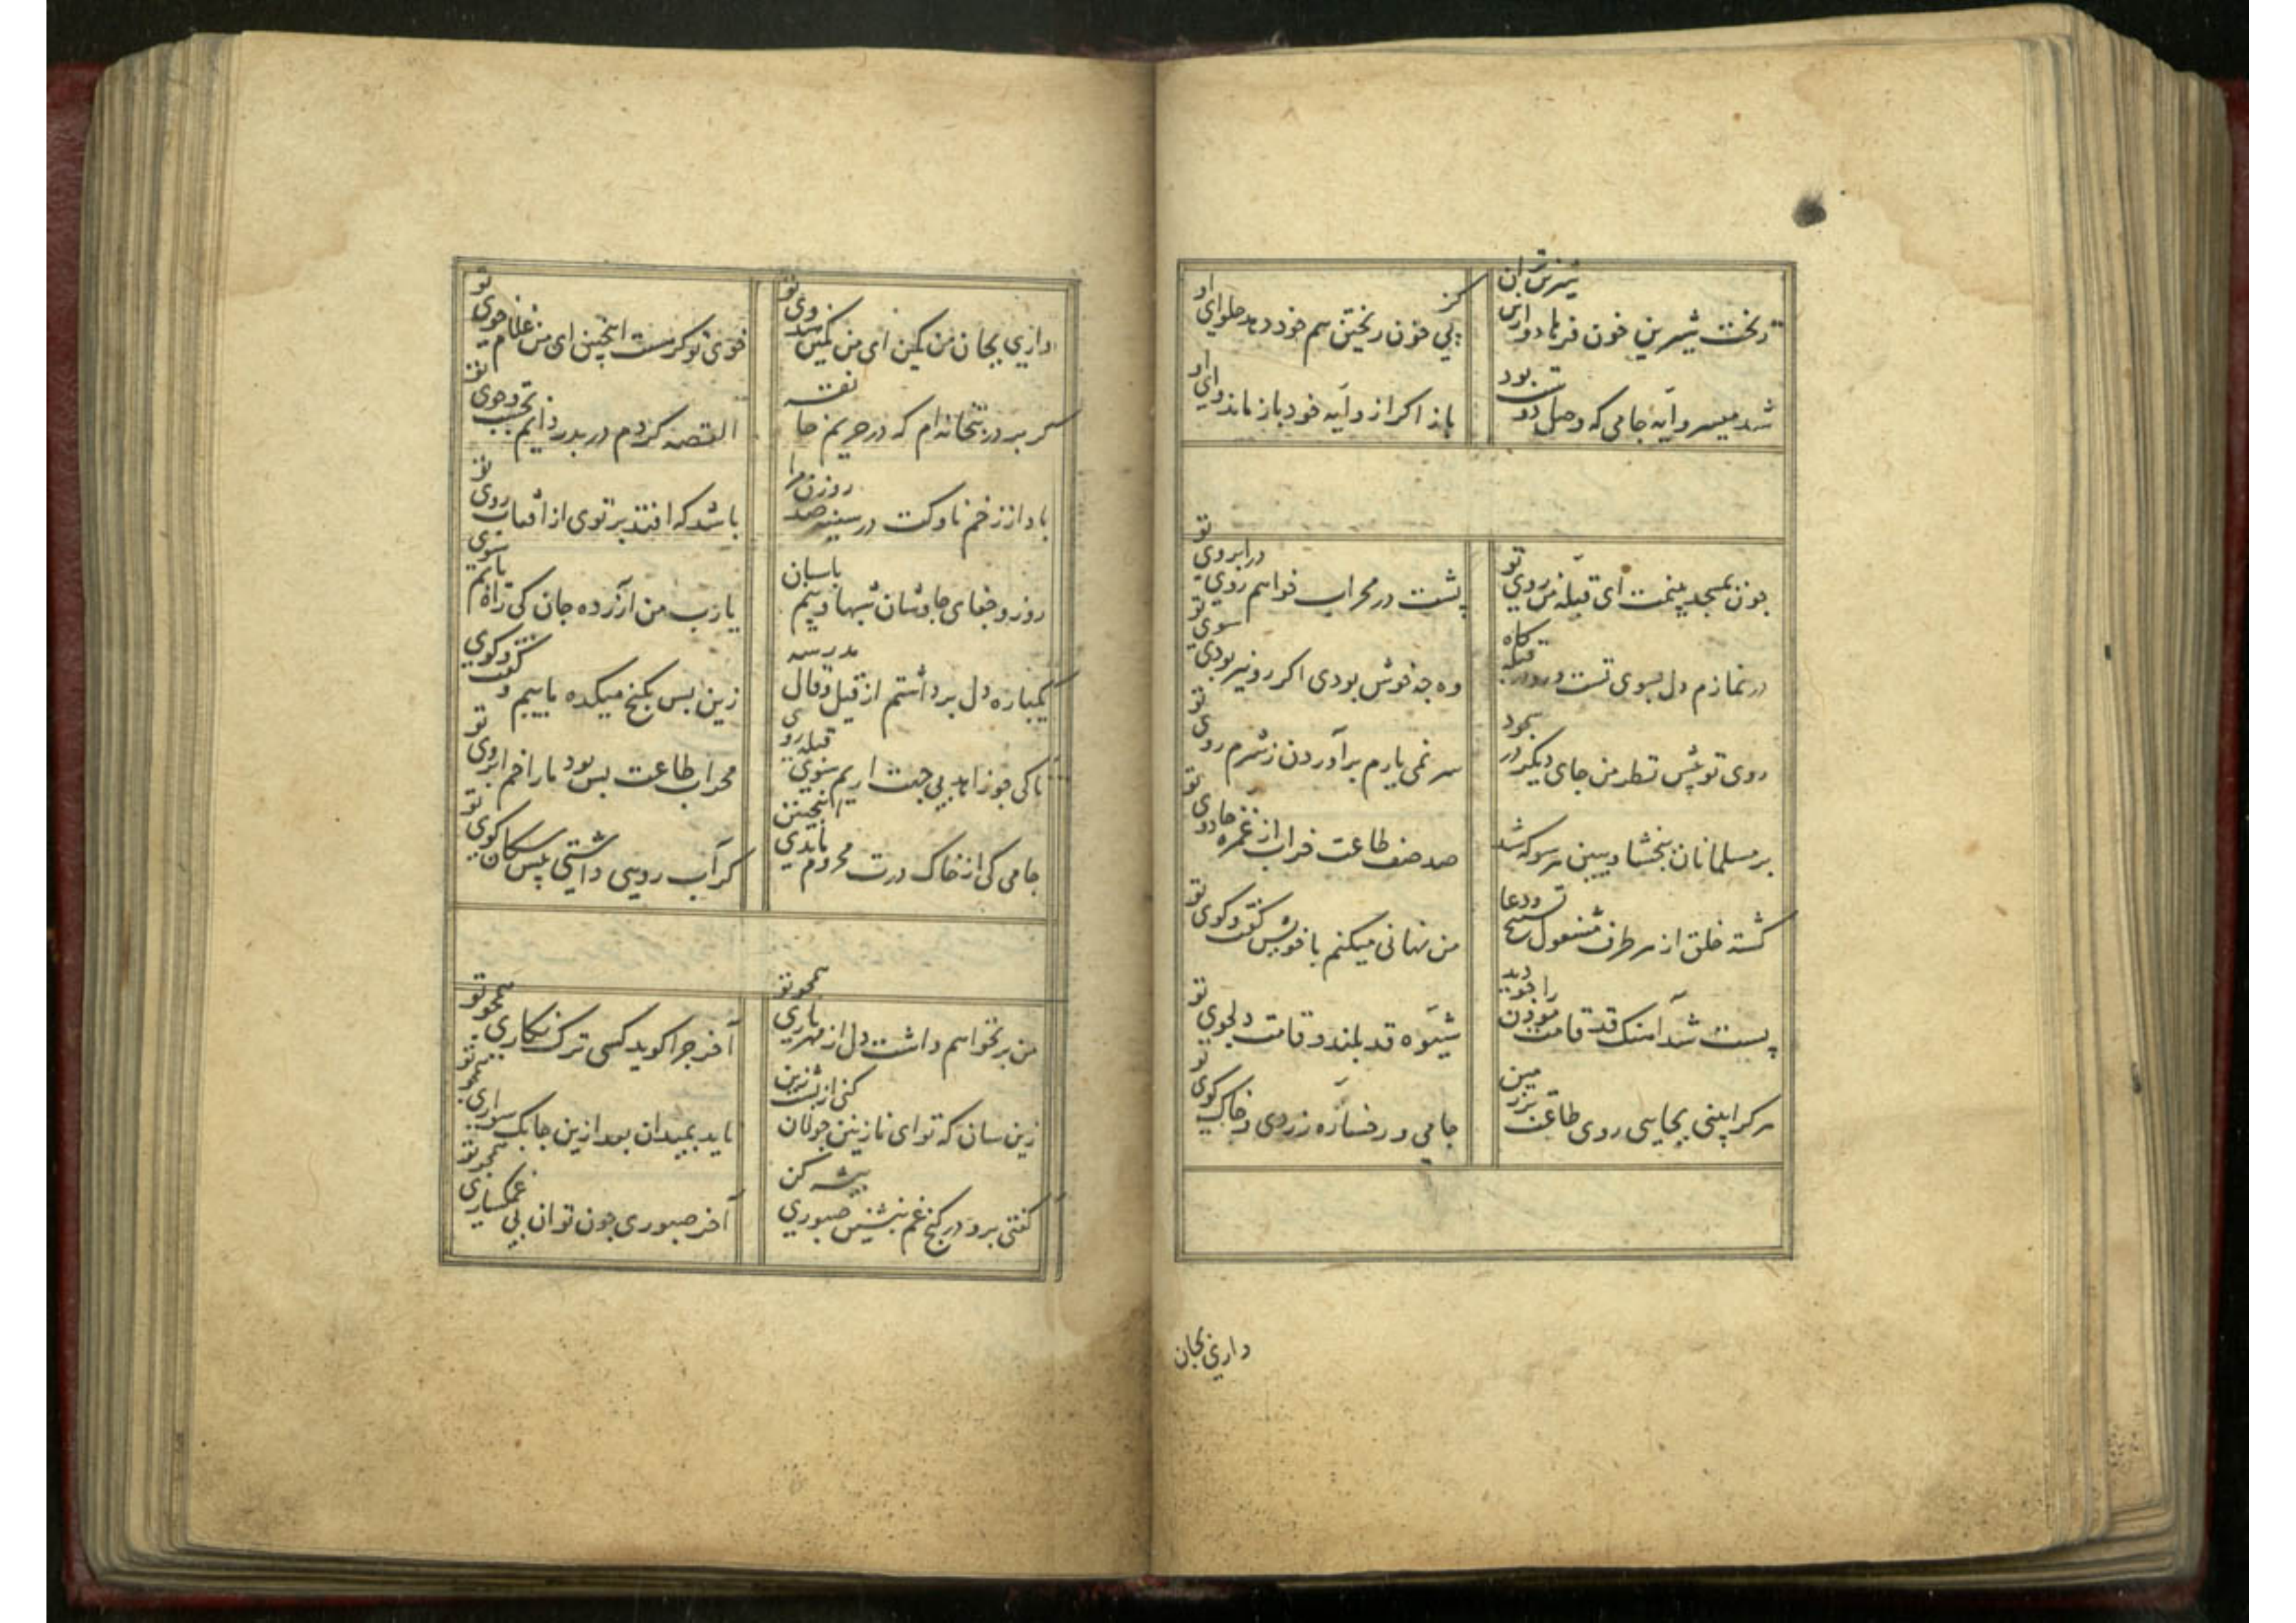 ریخت شیرین خون فرهاد و ازان شیرین‌تر
کز پی خون ریختن هم خود دهد حلوای او
شد میسر وایه جامی که وصل دوست بود
باز اگر از وایه خود باز ماند وای او
چون بمسجد بینمت ای قبله من روی تو
پشت در محراب خواهم روی در ابروی تو
در نمازم دل بسوی تست و رو در قبله گاه
وه چه خوش بودی اگر رو نیز بودی سوی تو
روی تو پیش نظر من جای دیگر در سجود
سر نمی یارم برآوردن ز شرم روی تو
بر مسلمانان ببخشا و ببین هر سو که شد
صد صف طاعت خراب از غمزه جادوی تو
گشته خلق از هر طرف مشغول تسبیح و دعا
من نهانی میکنم با خویش گفت و گوی تو
پست شد آهنگ قد قامت موذن را چو دید
شیوه قد بلند و قامت دلجوی تو
هر کرا بینی بجایی روی طاعت بر زمین
جامی و رخساره زردی و خاک کوی تو
داری بجان
داری بجان من کمین ای من کمین هندوی تو
خوی تو گر هست اینچنین ای من غلام خوی تو
گه بر در بتخانه‌ام گه در حریم خانقه
القصه گردم دربدر دایم بجست و جوی تو
بادا ز زخم ناوکت در سینه صد روزن مرا
باشد که افتد پرتوی از آفتاب روی تو
روز و جفای چاوشان شبها و بیم پاسبان
یارب من آزرده جان کی راه یابم سوی تو
یکباره دل برداشتم از قیل و قال مدرسه
زین پس بکنج میکده ماییم و گفت و گوی تو
تا کی چو زاهد بی جهت آریم سوی قبله روی
محراب طاعت بس بود ما را خم ابروی تو
جامی کی از خاک درت محروم ماندی اینچنین
گر آب رویی داشتی پیش سگان کوی تو
من برنخواهم داشت دل از مهر یاری همچو تو
آخر چرا گوید کسی ترک نگاری همچو تو
زین سان که تو ای نازنین جولان کنی از پشت زین
ناید بمیدان بعد ازین چابک سواری همچو تو
گفتی برو در کنج غم بنشین صبوری پیشه کن
آخر صبوری چون توان بی غمگساری همچو تو